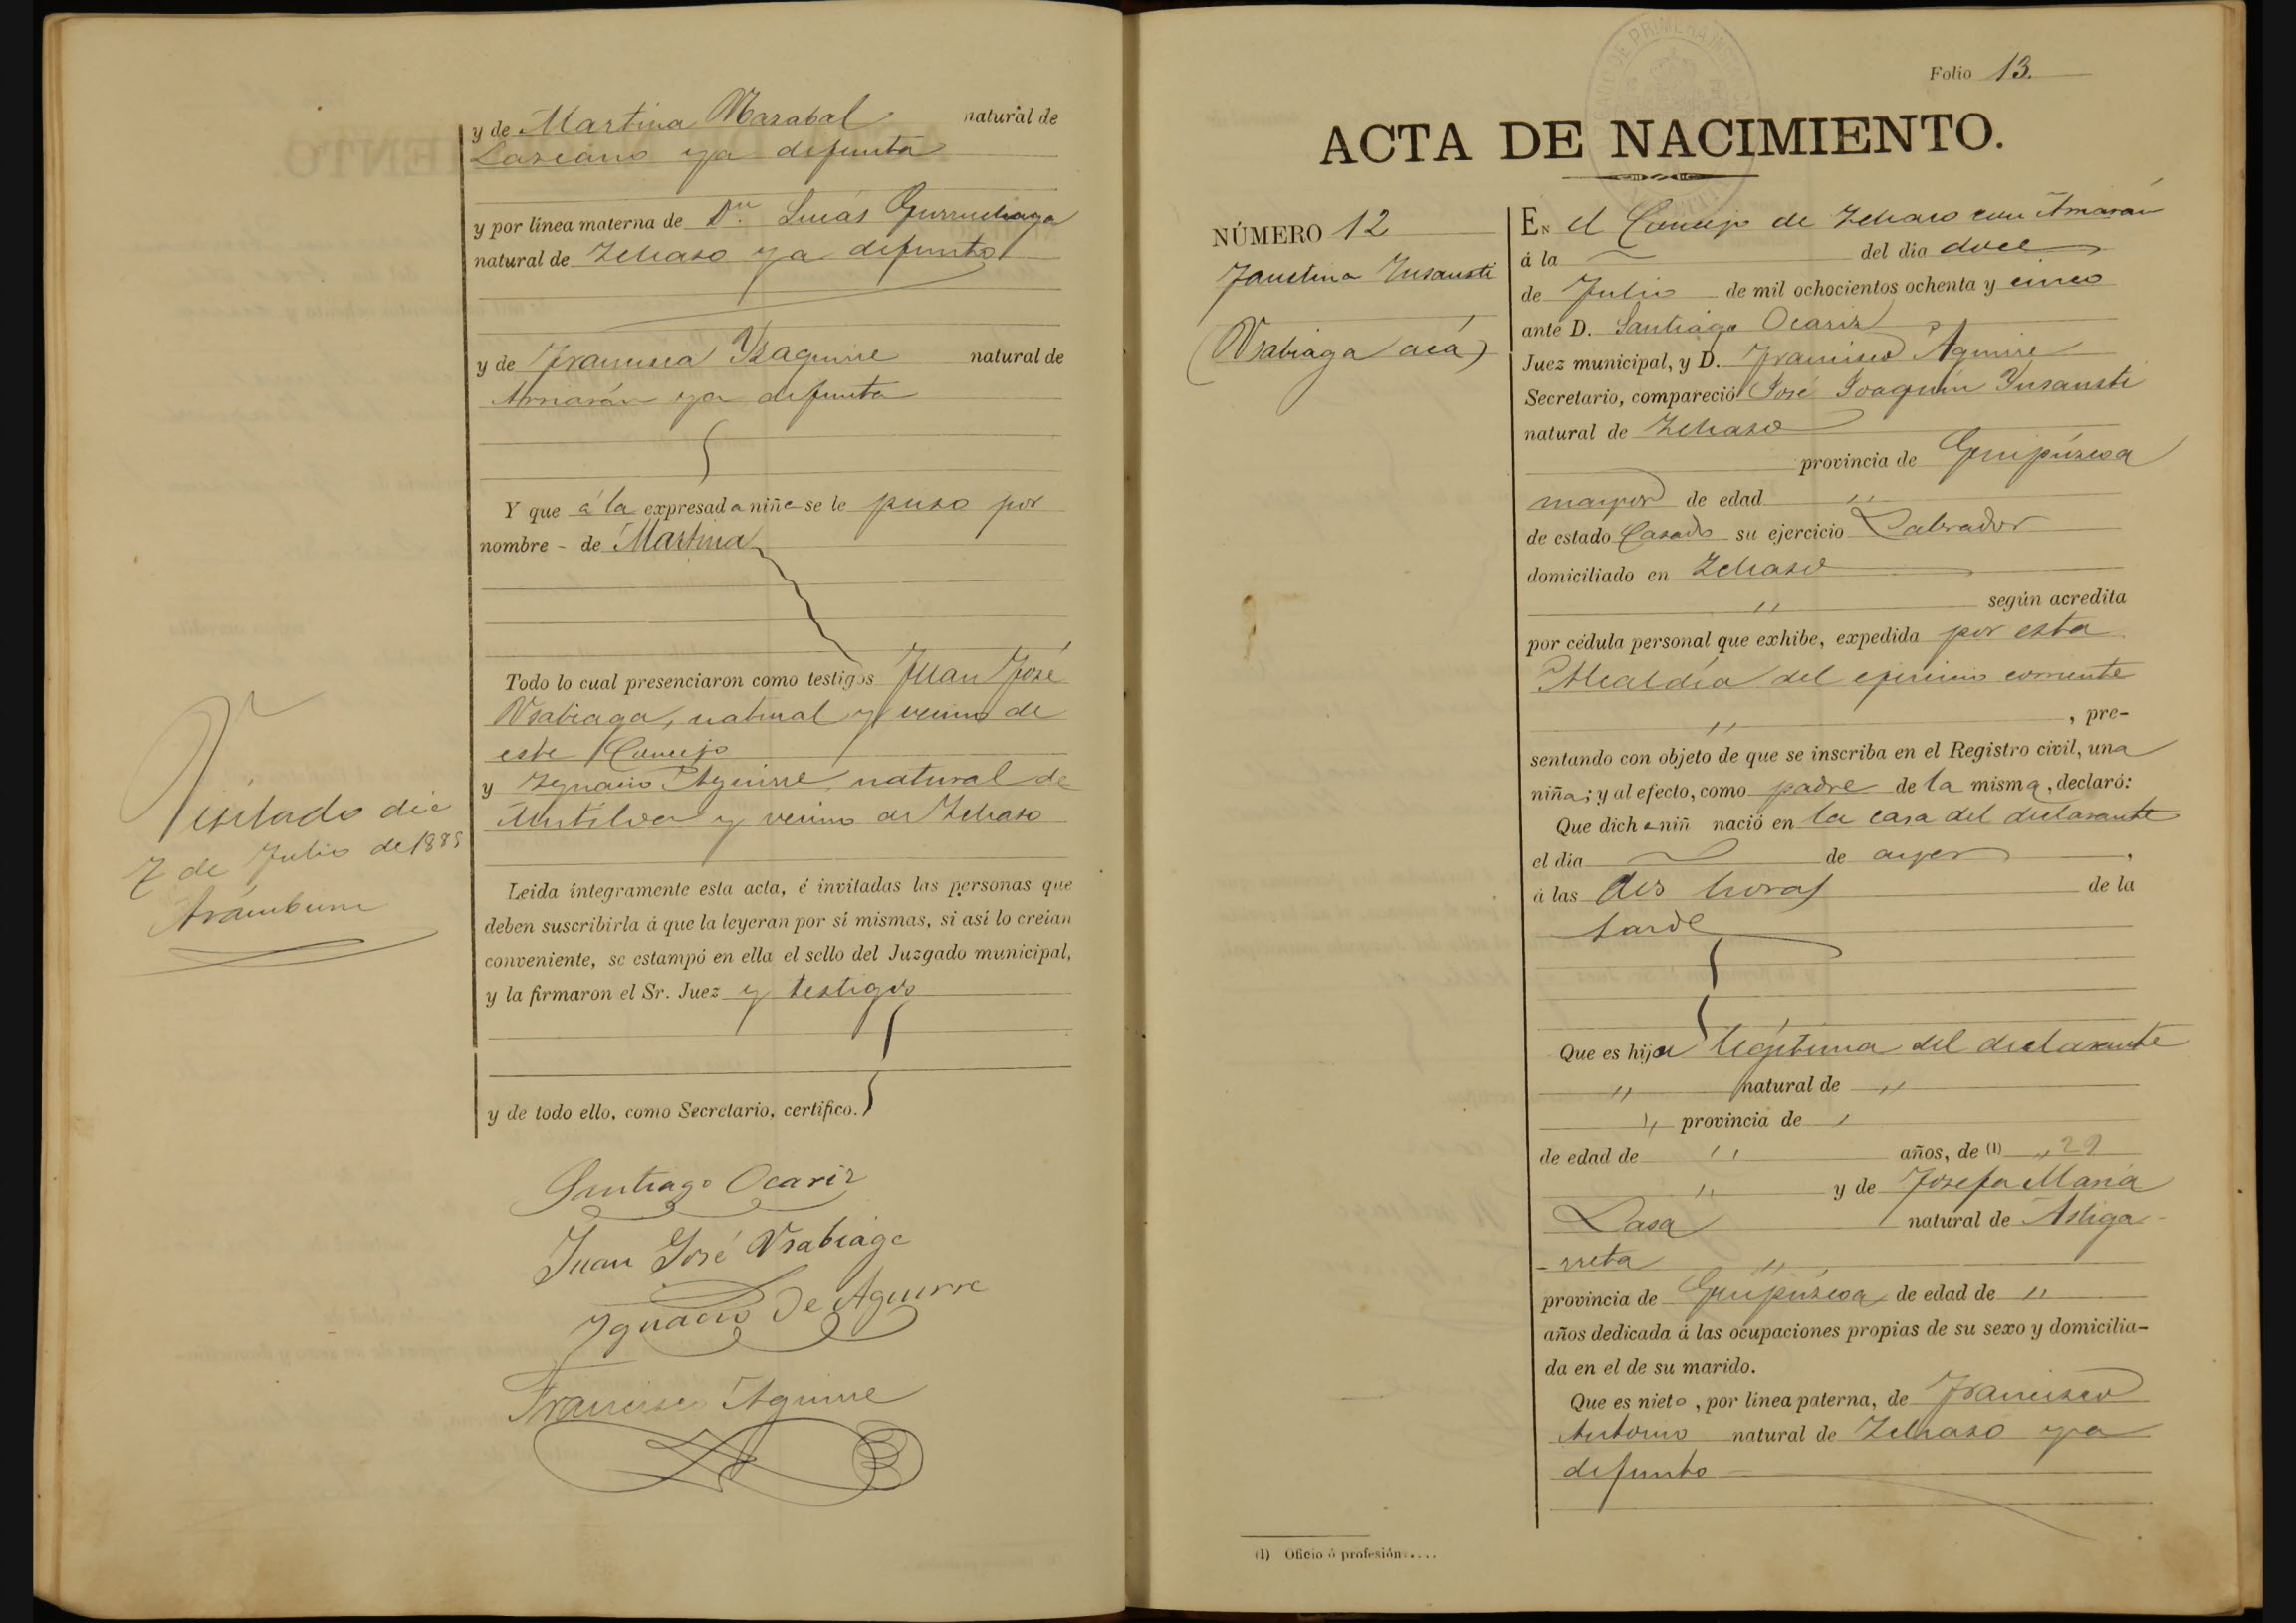 y de Martina Mazabal natural de
Lazcano ya difunta
y por línea materna de Dn. Lucás Gurruchaga
natural de Ichaso ya difunto
y de Francisca Yzaguirre natural de
Arnarán ya difunta
Y que á la expresada niña se le puso por
nombre - de Martina
Todo lo cual presenciaron como testigos Juan José
Usabiaga, natural y vecino de
este Concejo
y Ygnacio Aguirre natural de
Mutiloa y vecino de Ichaso
Visitado dia
7 de Julio de 1885
Aramburu
Leida íntegramente esta acta, é invitadas las personas que
deben suscribirla á que la leyeran por sí mismas, si así lo creían
conveniente, se estampó en ella el sello del Juzgado municipal,
y la firmaron el Sr. Juez y testigos
y de todo ello, como Secretario, certifico.
Santiago Ocariz
Juan José Usabiaga
Ygnacio De Aguirre
Francisco Aguirre
Folio 13.
ACTA DE NACIMIENTO.
NÚMERO 12
Faustina Insausti
(Usabiaga acá)
EN el Concejo de Ichaso con Arnarán
á la del dia doce
de Julio de mil ochocientos ochenta y cinco
ante D. Santiago Ocariz
Juez municipal, y D. Francisco Aguirre
Secretario, compareció José Joaquin Ynsausti
natural de Ichaso
provincia de Guipúzcoa
mayor de edad ,,
de estado Casado su ejercicio Labrador
domiciliado en Ichaso
,, según acredita
por cédula personal que exhibe, expedida por esta
Alcaldía del ejercicio corriente
,, , pre-
sentando con objeto de que se inscriba en el Registro civil, una
niña; y al efecto, como padre de la misma, declaró:
Que dicha niñ nació en la casa del declarante
el dia de ayer ,
á las dos horas de la
tarde
Que es hija legítima del declarante
,, natural de ,,
,, provincia de ,
de edad de ,, años, de (1) ,, 29
,, y de Josefa Maria
Lasa natural de Astiga-
-rreta ,,
provincia de Guipúzcoa de edad de ,,
años dedicada á las ocupaciones propias de su sexo y domicilia-
da en el de su marido.
Que es nieto, por línea paterna, de Francisco
Antonio natural de Ichaso ya
difunto
(1) Oficio ó profesión....